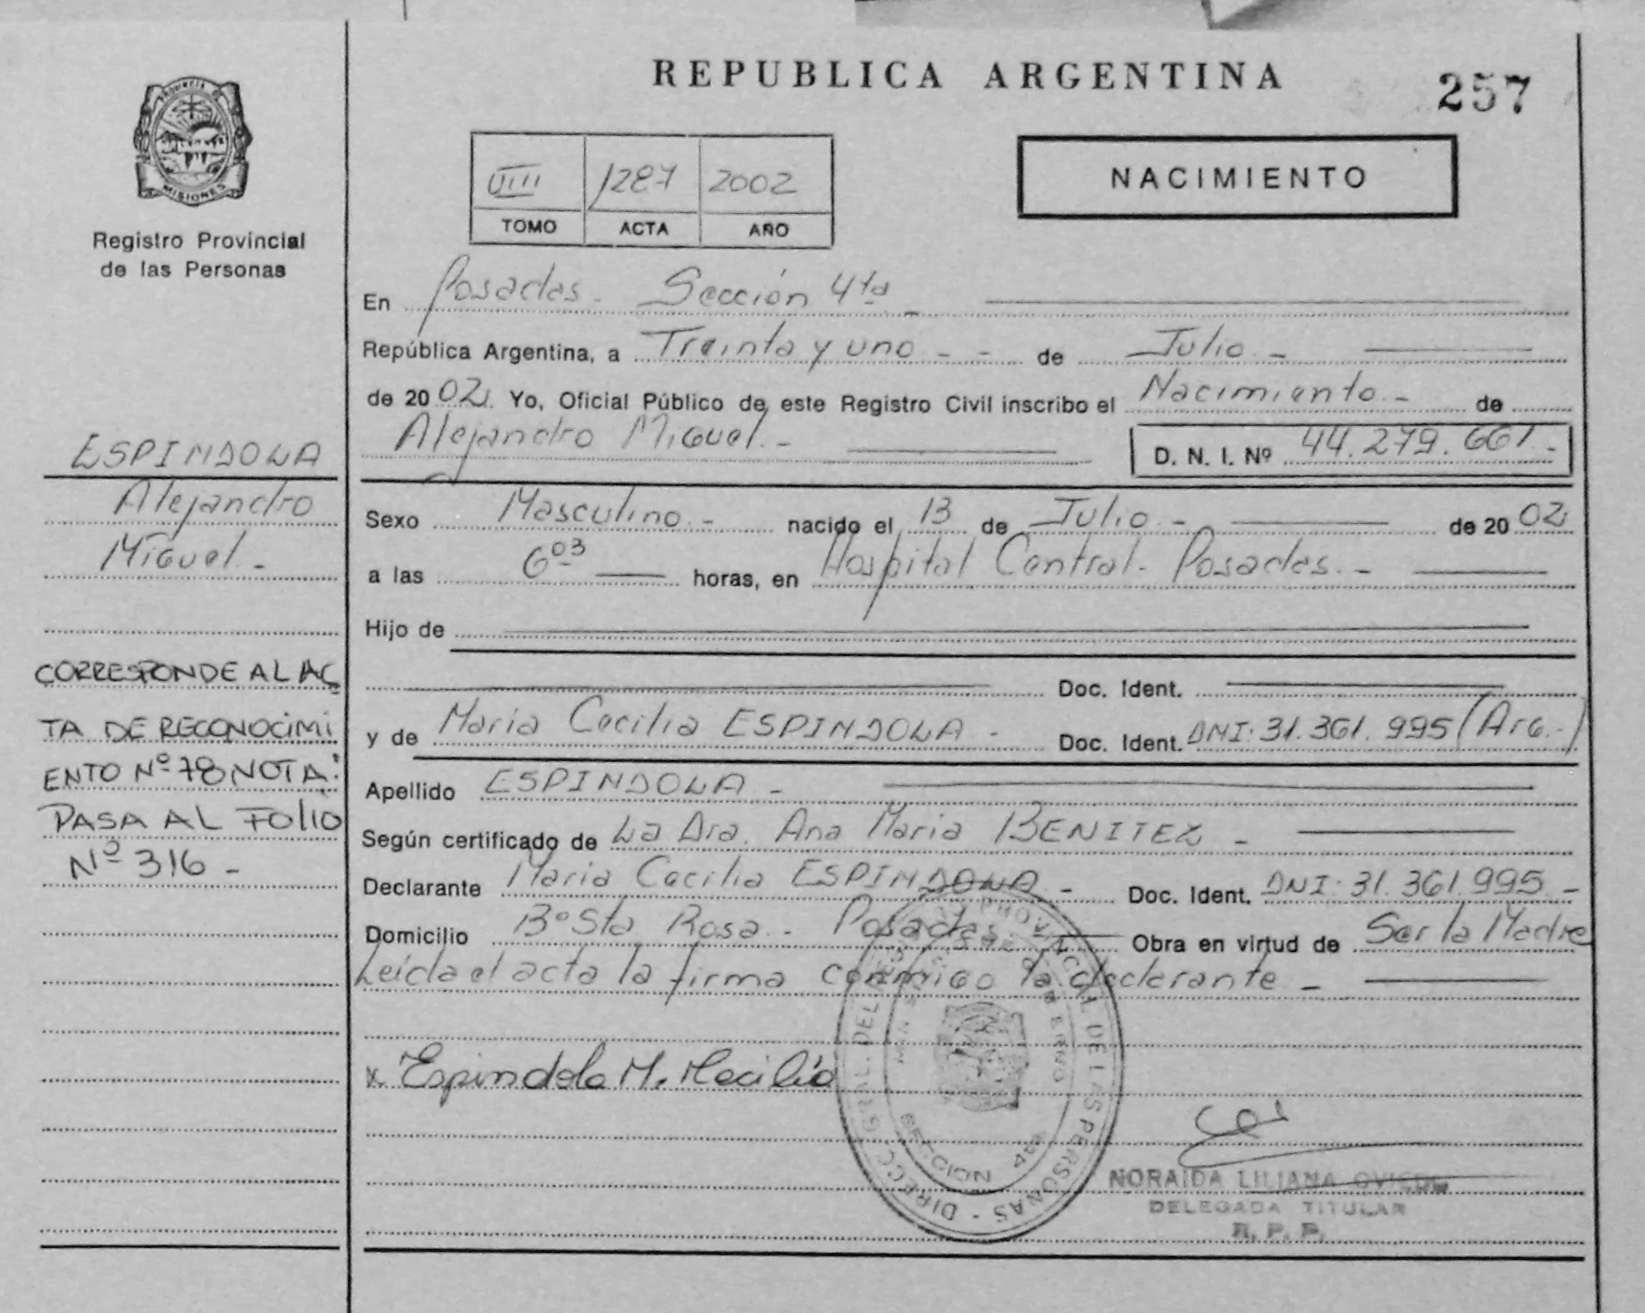 REPUBLICA ARGENTINA
257
NACIMIENTO
VIII 1287 2002
TOMO ACTA AÑO
PROVINCIA DE
MISIONES
Registro Provincial
de las Personas
ESPINDOLA
Alejandro
Miguel.-
CORRESPONDE AL AC
TA DE RECONOCIMI
ENTO Nº 78 NOTA:
PASA AL FOLIO
Nº 316 -
En Posadas. Sección 4ta -
República Argentina, a Treinta y uno - - de Julio -
de 2002. Yo, Oficial Público de este Registro Civil inscribo el Nacimiento - de
Alejandro Miguel.- D. N. I. Nº 44.279.661.-
Sexo Masculino.- nacido el 13 de Julio.- de 2002
a las 6 03 horas, en Hospital Central. Posadas.-
Hijo de
Doc. Ident.
y de Maria Cecilia ESPINDOLA - Doc. Ident. DNI: 31.361.995 (Arg.-)
Apellido ESPINDOLA -
Según certificado de La Dra. Ana Maria BENITEZ -
Declarante Maria Cecilia ESPINDOLA - Doc. Ident. DNI: 31.361.995 -
Domicilio Bº Sta Rosa - Posadas Obra en virtud de Ser la Madre
Leída el acta la firma conmigo la declarante -
x Espindola M. Cecilia
NORAIDA LILIANA OVIEDO
DELEGADA TITULAR
R. P. P.